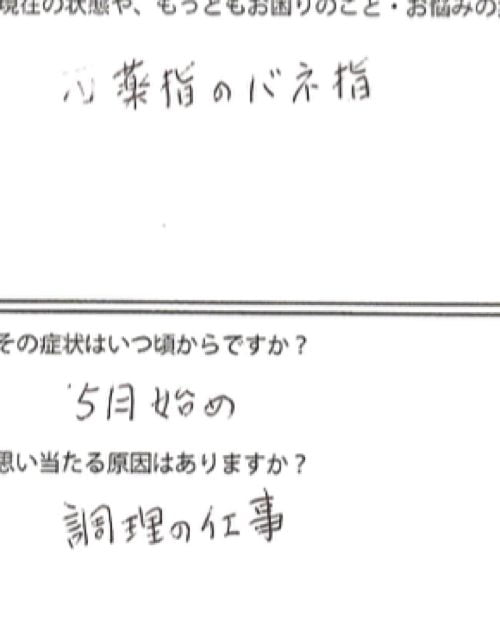 現在の状態や、もっともお困りのこと・お悩みの
薬指のバネ指
その症状はいつ頃からですか？
5月始め
思い当たる原因はありますか？
調理の仕事